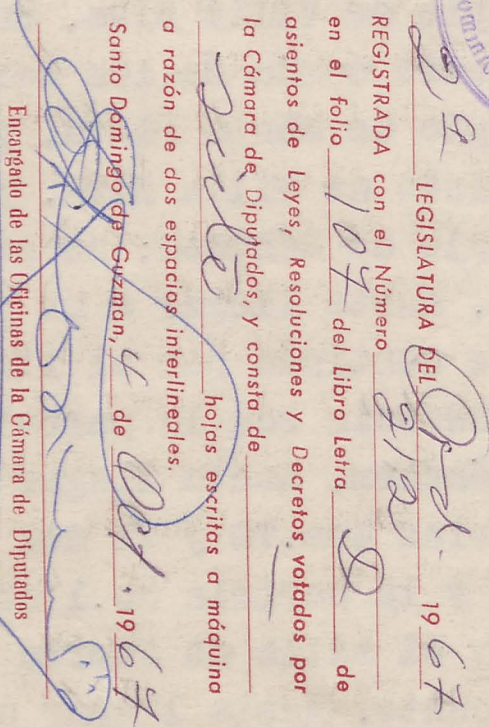 2ª LEGISLATURA DEL Ord. 1967
REGISTRADA con el Número 212
en el folio 107 del Libro Letra D de
asientos de Leyes, Resoluciones y Decretos votados por
la Cámara de Diputados, y consta de
hojas escritas a máquina
a razón de dos espacios interlineales.
Santo Domingo de Guzmán, 4 de Oct. 1967
Encargado de las Oficinas de la Cámara de Diputados